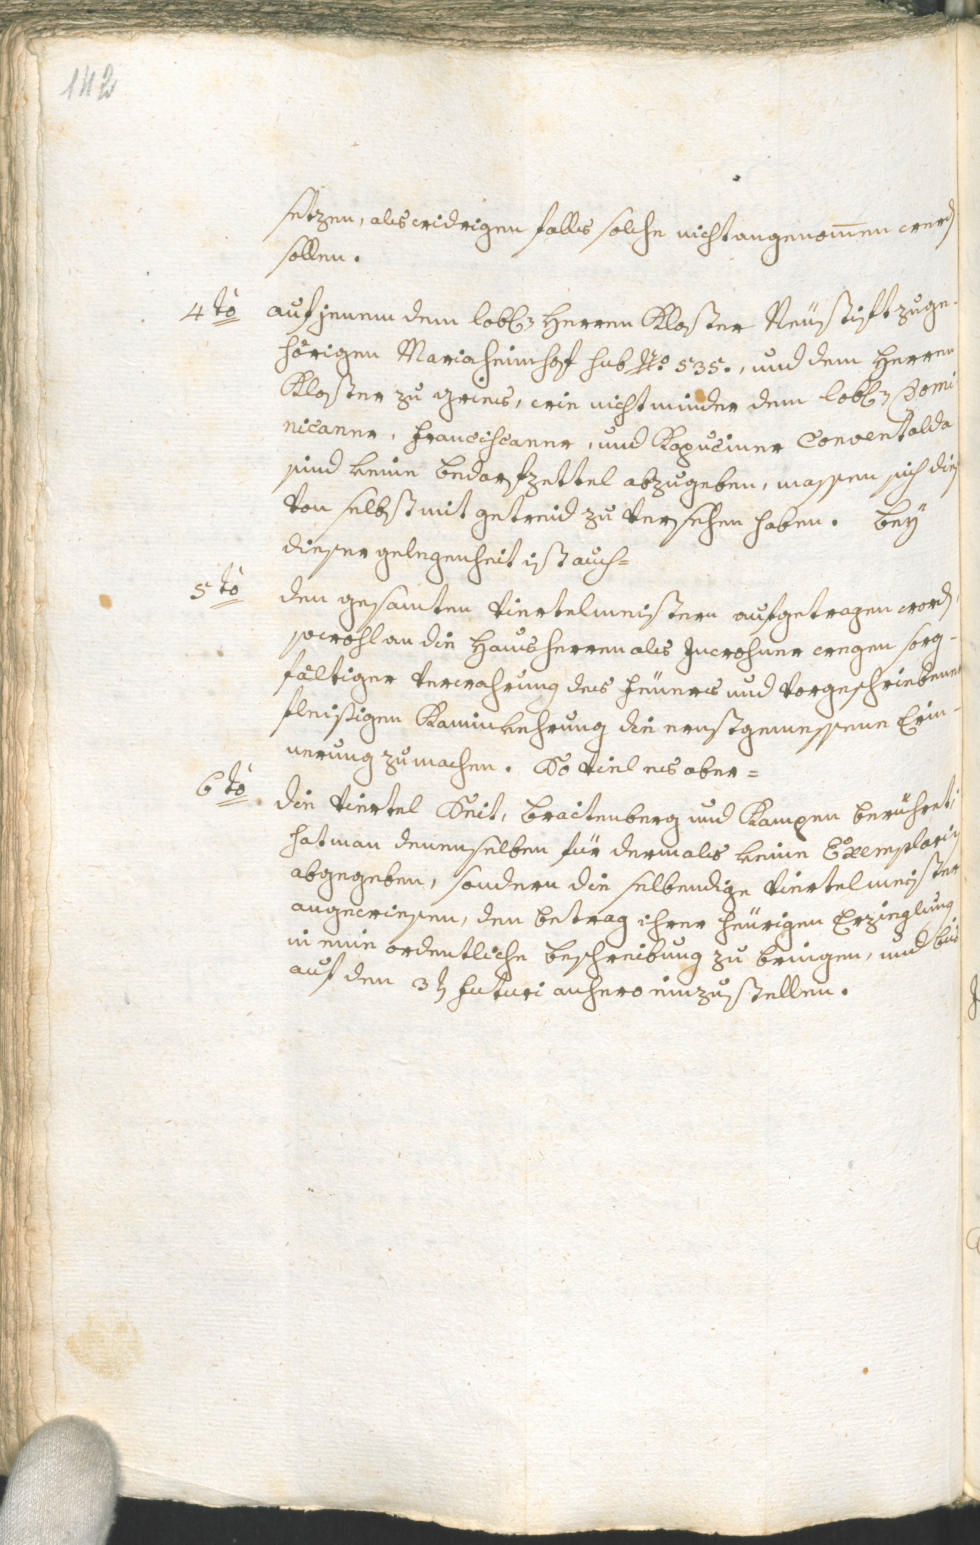 142
setzen, als widrigen falls solche nicht angenom̅en werd
sollen.
4to auf jenem dem lobl: Herren Kloster Neüstift zuge-
hörigen Mariaheimhof sub No. 535., und dem Herren
Kloster zu Gries, wie nicht minder dem lobl: Domi
nicaner, Franciscaner, und Kapuciner Convent alda
sind keine Bedarfzettel abzugeben, massen sich diese
von selbst mit getreid zu versehen haben. Bey
dieser gelegenheit ist auch=
5to den gesamten Viertelmeistern aufgetragen word,
sowohl an die Hausherren als Inwohner wegen sorg-
fältiger Verwahrung des feüers und vorgeschriebener
fleißigen Kaminkehrung die ernstgemessene Erin-
nerung zu machen. So viel es aber=
6to die Viertel Seit, Breitenberg und Kampen berühret,
hat man denenselben für dermals keine Exemplaria
abgegeben, sondern die selbendige Viertelmeister
angewiesen, den betrag ihrer heürigen Erzieglung
in eine ordentliche beschreibung zu bringen, und bis
auf den 3t futuri anhero einzustellen.